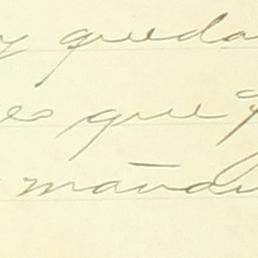 y queda
es que y
manda